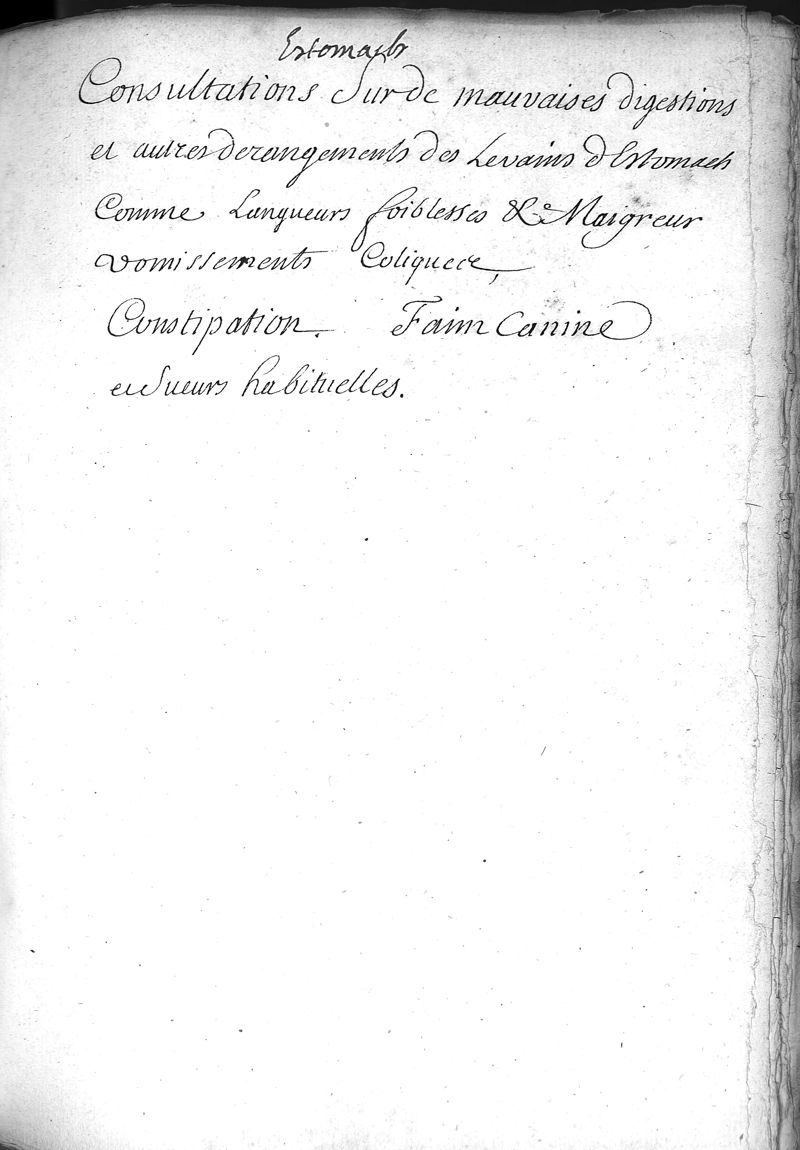 Estomach
Consultations Sur de mauvaises digestions
et autres derangements des Levains d'Estomach
Comme Langueurs foiblesses &c Maigreur
vomissements Coliques &c,
Constipation. Faim Canine
et Sueurs habituelles.